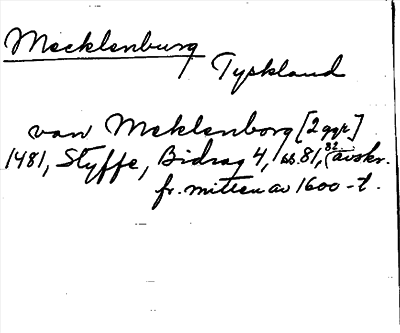 Mecklenburg
Tyskland
van Meklenborg [2 ggr]
1481, Styffe, Bidrag 4, ss. 81, 82 (avskr.
fr. mitten av 1600-t.